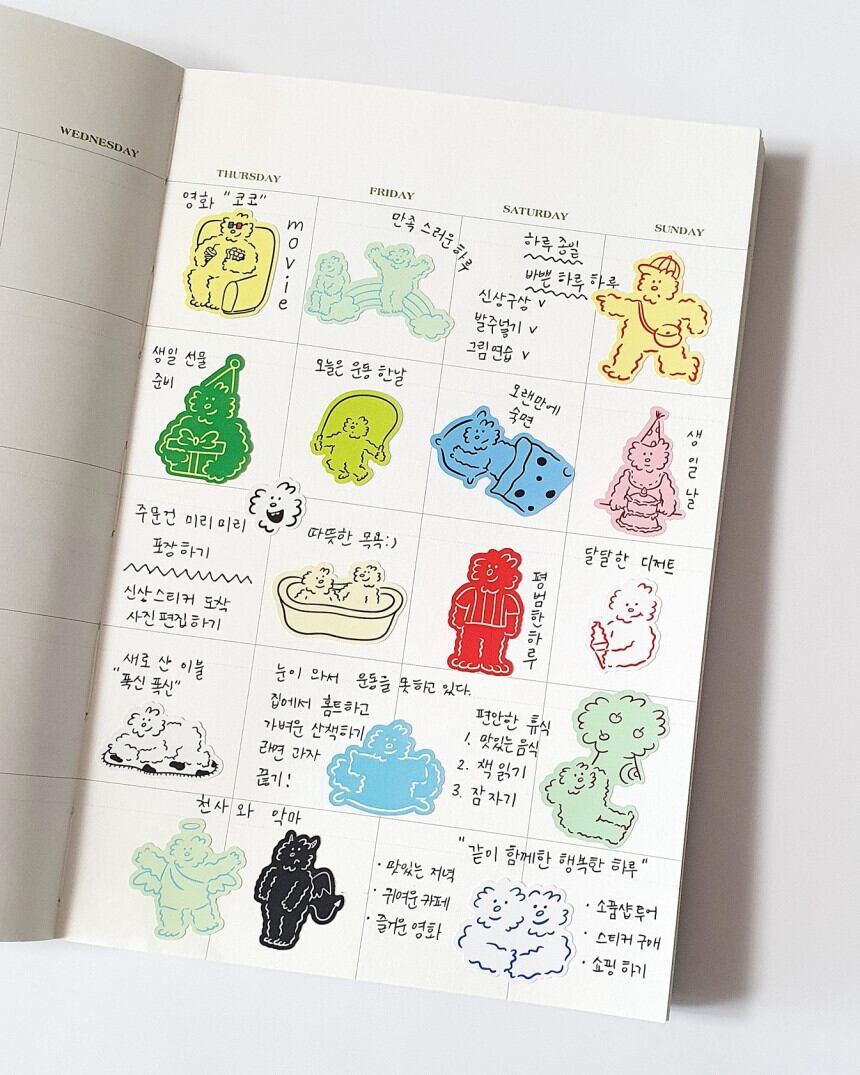 WEDNESDAY
THURSDAY
FRIDAY
SATURDAY
SUNDAY
영화 "코코"
movie
만족 스러운 하루
하루 종일
바쁜 하루 하루
신상구상 v
발주넣기 v
그림연습 v
생일 선물
준비
오늘은 운동 한날
오랜만에
숙면
생일날
주문건 미리미리
포장하기
신상스티커 도착
사진 편집하기
따뜻한 목욕:)
평범한하루
달달한 디저트
새로 산 이불
"폭신 폭신"
눈이 와서 운동을 못하고 있다.
집에서 홈트하고
가벼운 산책하기
라면 과자
끊기!
편안한 휴식
1. 맛있는음식
2. 책 읽기
3. 잠자기
천사 와 악마
· 맛있는 저녁
· 귀여운 카페
· 즐거운 영화
"같이 함께한 행복한 하루"
· 소품샵투어
· 스티커 구매
· 쇼핑하기